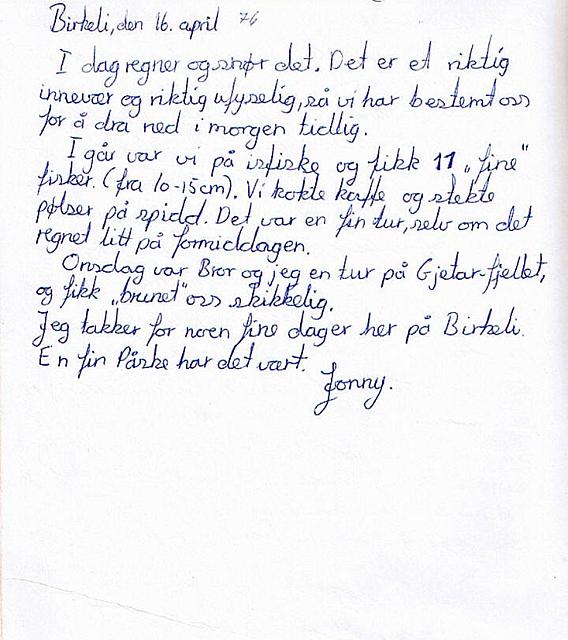 Birkeli, den 16. april 76
I dag regner og snør det. Det er et riktig
innevær og riktig ufyselig, så vi har bestemt oss
for å dra ned i morgen tidlig.
I går var vi på isfiske og fikk 11 „fine"
fisker. (fra 10-15cm). Vi kokte kaffe og stekte
pølser på spidd. Det var en fin tur, selv om det
regnet litt på formiddagen.
Onsdag var Bror og jeg en tur på Gjetar-fjellet,
og fikk „brunet" oss skikkelig.
Jeg takker for noen fine dager her på Birkeli.
En fin Påske har det vært.
Jonny.